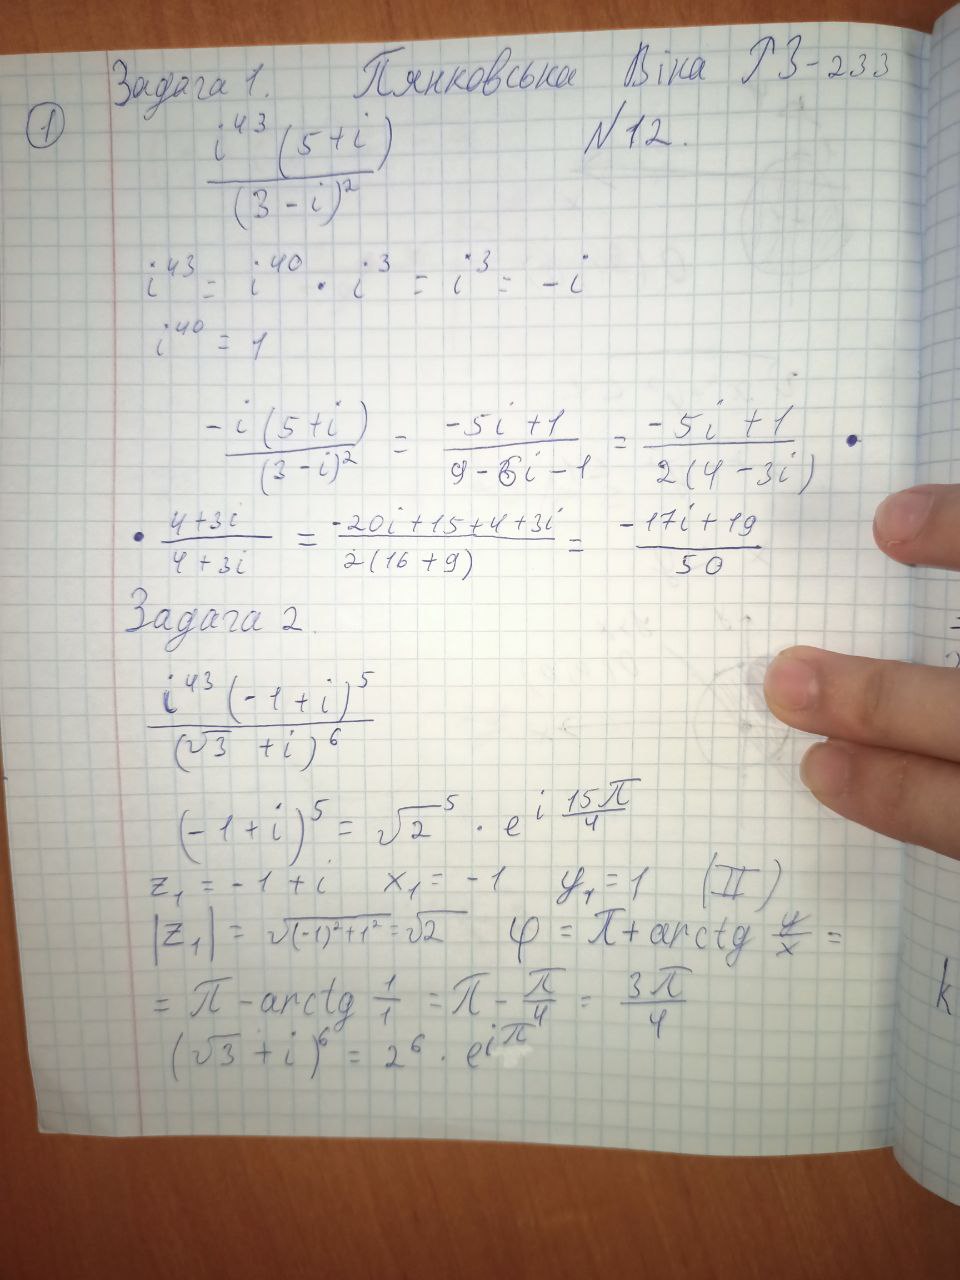 Задача 1. Пянковська Віка РЗ-233
1
i^43 (5+i) / (3-i)^2 N12.
i^43 = i^40 · i^3 = i^3 = -i
i^40 = 1
-i(5+i) / (3-i)^2 = -5i+1 / 9-6i-1 = -5i+1 / 2(4-3i) ·
· 4+3i / 4+3i = -20i+15+4+3i / 2(16+9) = -17i+19 / 50
Задача 2.
i^43 (-1+i)^5 / (√3 +i)^6
(-1+i)^5 = √2^5 · e^i 15π/4
z₁ = -1+i x₁ = -1 y₁ = 1 (II)
|z₁| = √(-1)²+1² = √2 φ = π + arctg y/x =
= π - arctg 1/1 = π - π/4 = 3π/4
(√3+i)^6 = 2^6 · e^iπ
k